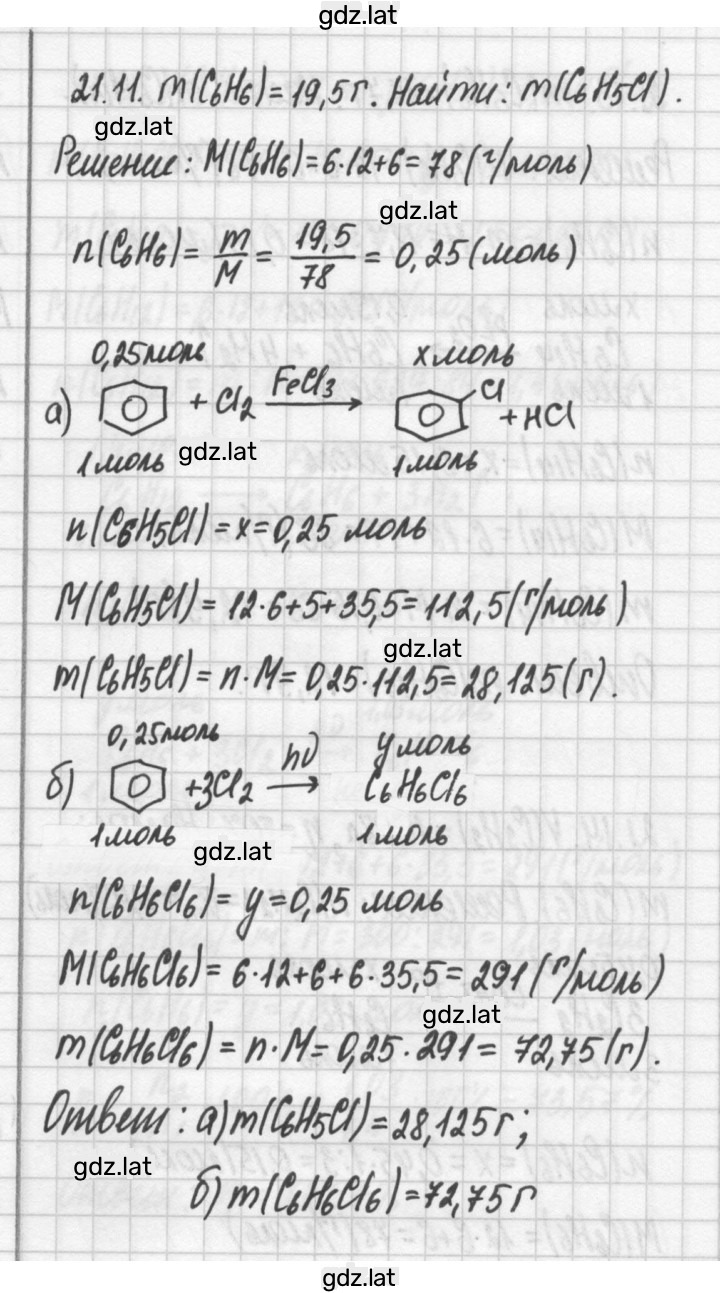 gdz.lat
21.11. m(C₆H₆)=19,5г. Найти: m(C₆H₅Cl).
gdz.lat
Решение: M(C₆H₆)=6·12+6=78(г/моль)
gdz.lat
n(C₆H₆)= m/M = 19,5/78 = 0,25(моль)
0,25моль xмоль
а) + Cl₂ FeCl₃ → Cl +HCl
1моль gdz.lat 1моль
n(C₆H₅Cl)=x=0,25 моль
M(C₆H₅Cl)= 12·6+5+35,5=112,5(г/моль)
gdz.lat
m(C₆H₅Cl)= n·M= 0,25·112,5=28,125(г).
0,25моль yмоль
б) +3Cl₂ hν → C₆H₆Cl₆
1моль 1моль
gdz.lat
n(C₆H₆Cl₆)= y=0,25 моль
M(C₆H₆Cl₆)= 6·12+6+6·35,5=291(г/моль)
gdz.lat
m(C₆H₆Cl₆)= n·M=0,25·291= 72,75(г).
Ответ: а)m(C₆H₅Cl)=28,125г;
gdz.lat
б)m(C₆H₆Cl₆)=72,75г
gdz.lat